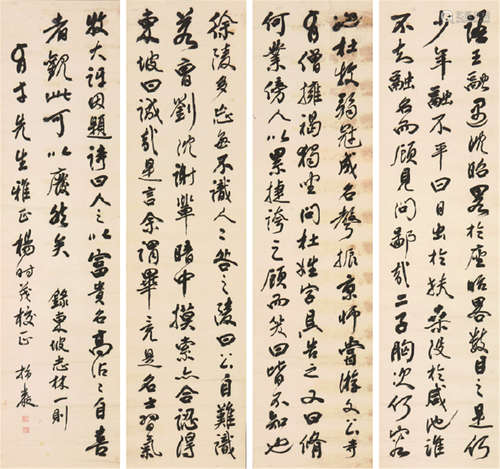 謂王融遇沈昭畧於座昭畧數目之是何
少年融不平曰日出於扶桑沒於咸池誰
不知融名而顧見問鄙哉二子胸次何容
此杜牧弱冠成名聲振京師嘗遊文公寺
有僧擁褐獨坐問杜姓字具告之又曰脩
何業傍人以累捷誇之顧而笑曰皆不知也
徐陵多忘每不識人人咎之陵曰公自難識
若曹劉沈謝輩暗中摸索亦合認得
東坡曰誠哉是言余謂畢竟是名士習氣
牧大訝因題詩曰人之以富貴名高沾沾自喜
者觀此可以廢然矣 錄東坡志林一則
有才先生雅正楊時茂校正